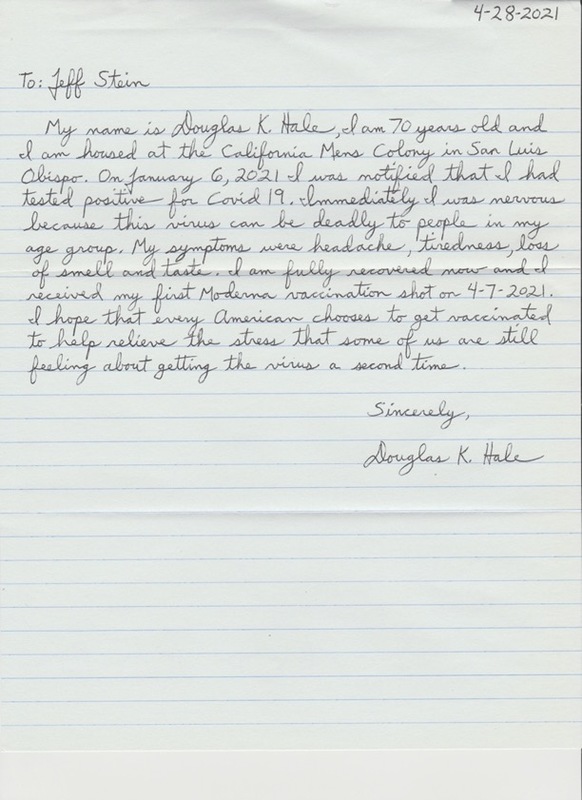 4-28-2021
To: Jeff Stein
My name is Douglas K. Hale, I am 70 years old and
I am housed at the California Mens Colony in San Luis
Obispo. On January 6, 2021 I was notified that I had
tested positive for Covid 19. Immediately I was nervous
because this virus can be deadly to people in my
age group. My symptoms were headache, tiredness, loss
of smell and taste. I am fully recovered now and I
received my first Moderna vaccination shot on 4-7-2021.
I hope that every American chooses to get vaccinated
to help relieve the stress that some of us are still
feeling about getting the virus a second time.
Sincerely,
Douglas K. Hale